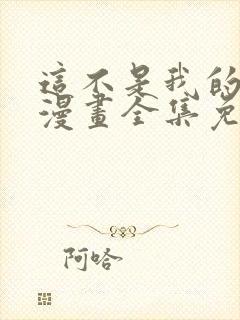 這不是我的
漫畫全集免
阿哈